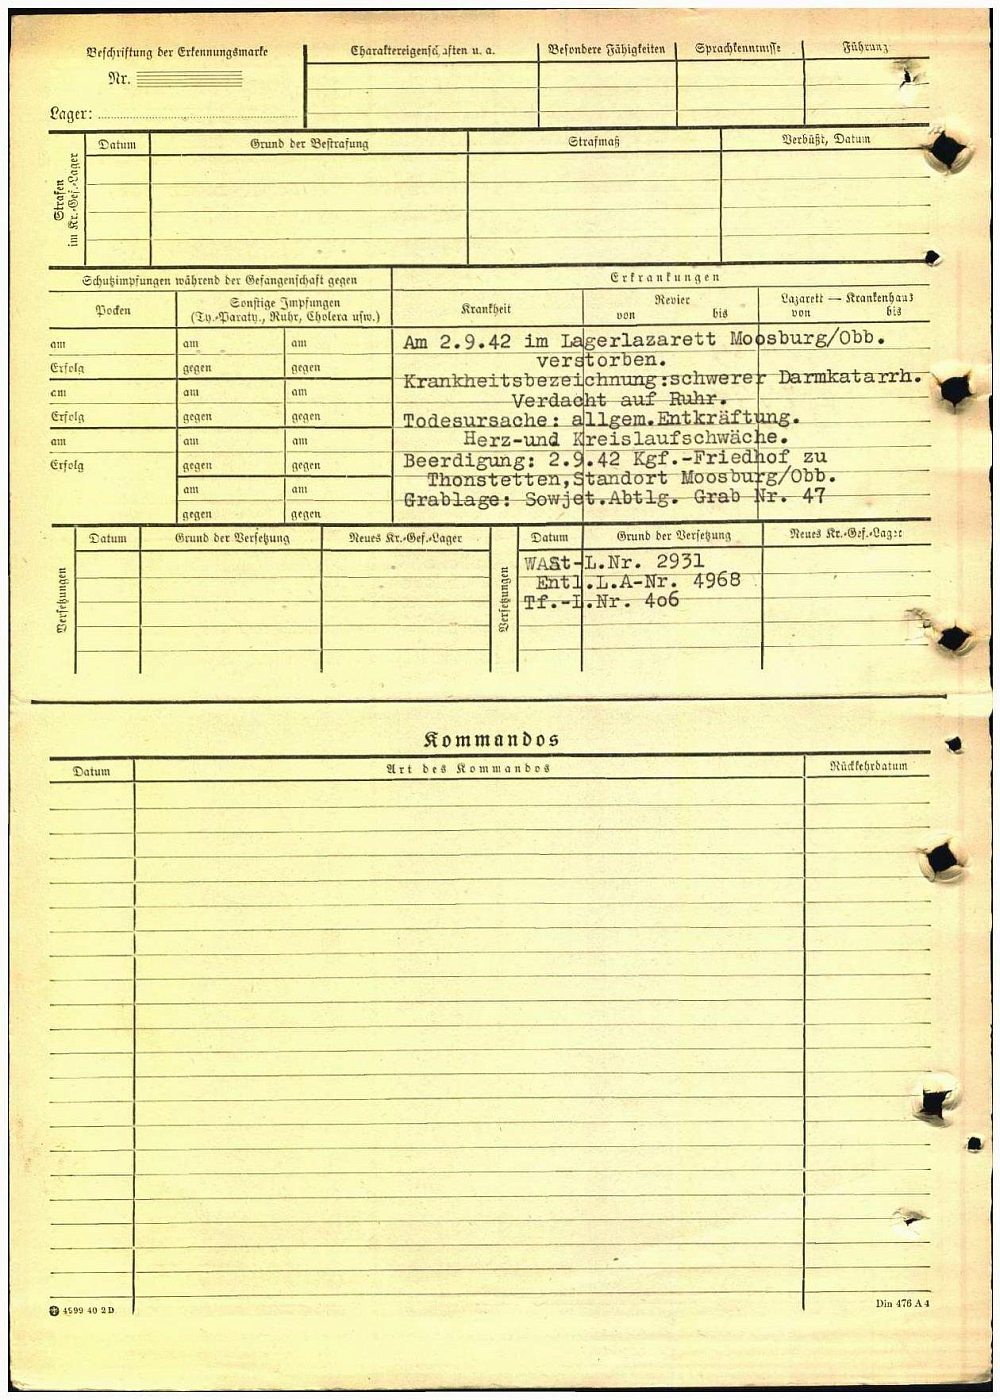 Beschriftung der Erkennungsmarke
Nr.
Lager:
Charaktereigenschaften u. a.
Besondere Fähigkeiten
Sprachkenntnisse
Führung
Strafen
im Kr.-Gef.-Lager
Datum
Grund der Bestrafung
Strafmaß
Verbüßt, Datum
Schutzimpfungen während der Gefangenschaft gegen
Erkrankungen
Pocken
Sonstige Impfungen
(Ty.-Paraty., Ruhr, Cholera usw.)
Krankheit
Revier
von bis
Lazarett — Krankenhaus
von bis
am am am
Erfolg gegen gegen
am am am
Erfolg gegen gegen
am am am
Erfolg gegen gegen
am am
gegen gegen
Am 2.9.42 im Lagerlazarett Moosburg/Obb.
verstorben.
Krankheitsbezeichnung:schwerer Darmkatarrh.
Verdacht auf Ruhr.
Todesursache: allgem.Entkräftung.
Herz-und Kreislaufschwäche.
Beerdigung: 2.9.42 Kgf.-Friedhof zu
Thonstetten,Standort Moosburg/Obb.
Grablage: Sowjet.Abtlg. Grab Nr. 47
Versetzungen
Datum
Grund der Versetzung
Neues Kr.-Gef.-Lager
Versetzungen
Datum
Grund der Versetzung
Neues Kr.-Gef.-Lager
WASt-L.Nr. 2931
Entl.L.A-Nr. 4968
Tf.-L.Nr. 4o6
Kommandos
Datum
Art des Kommandos
Rückkehrdatum
4599 40 2D
Din 476 A4